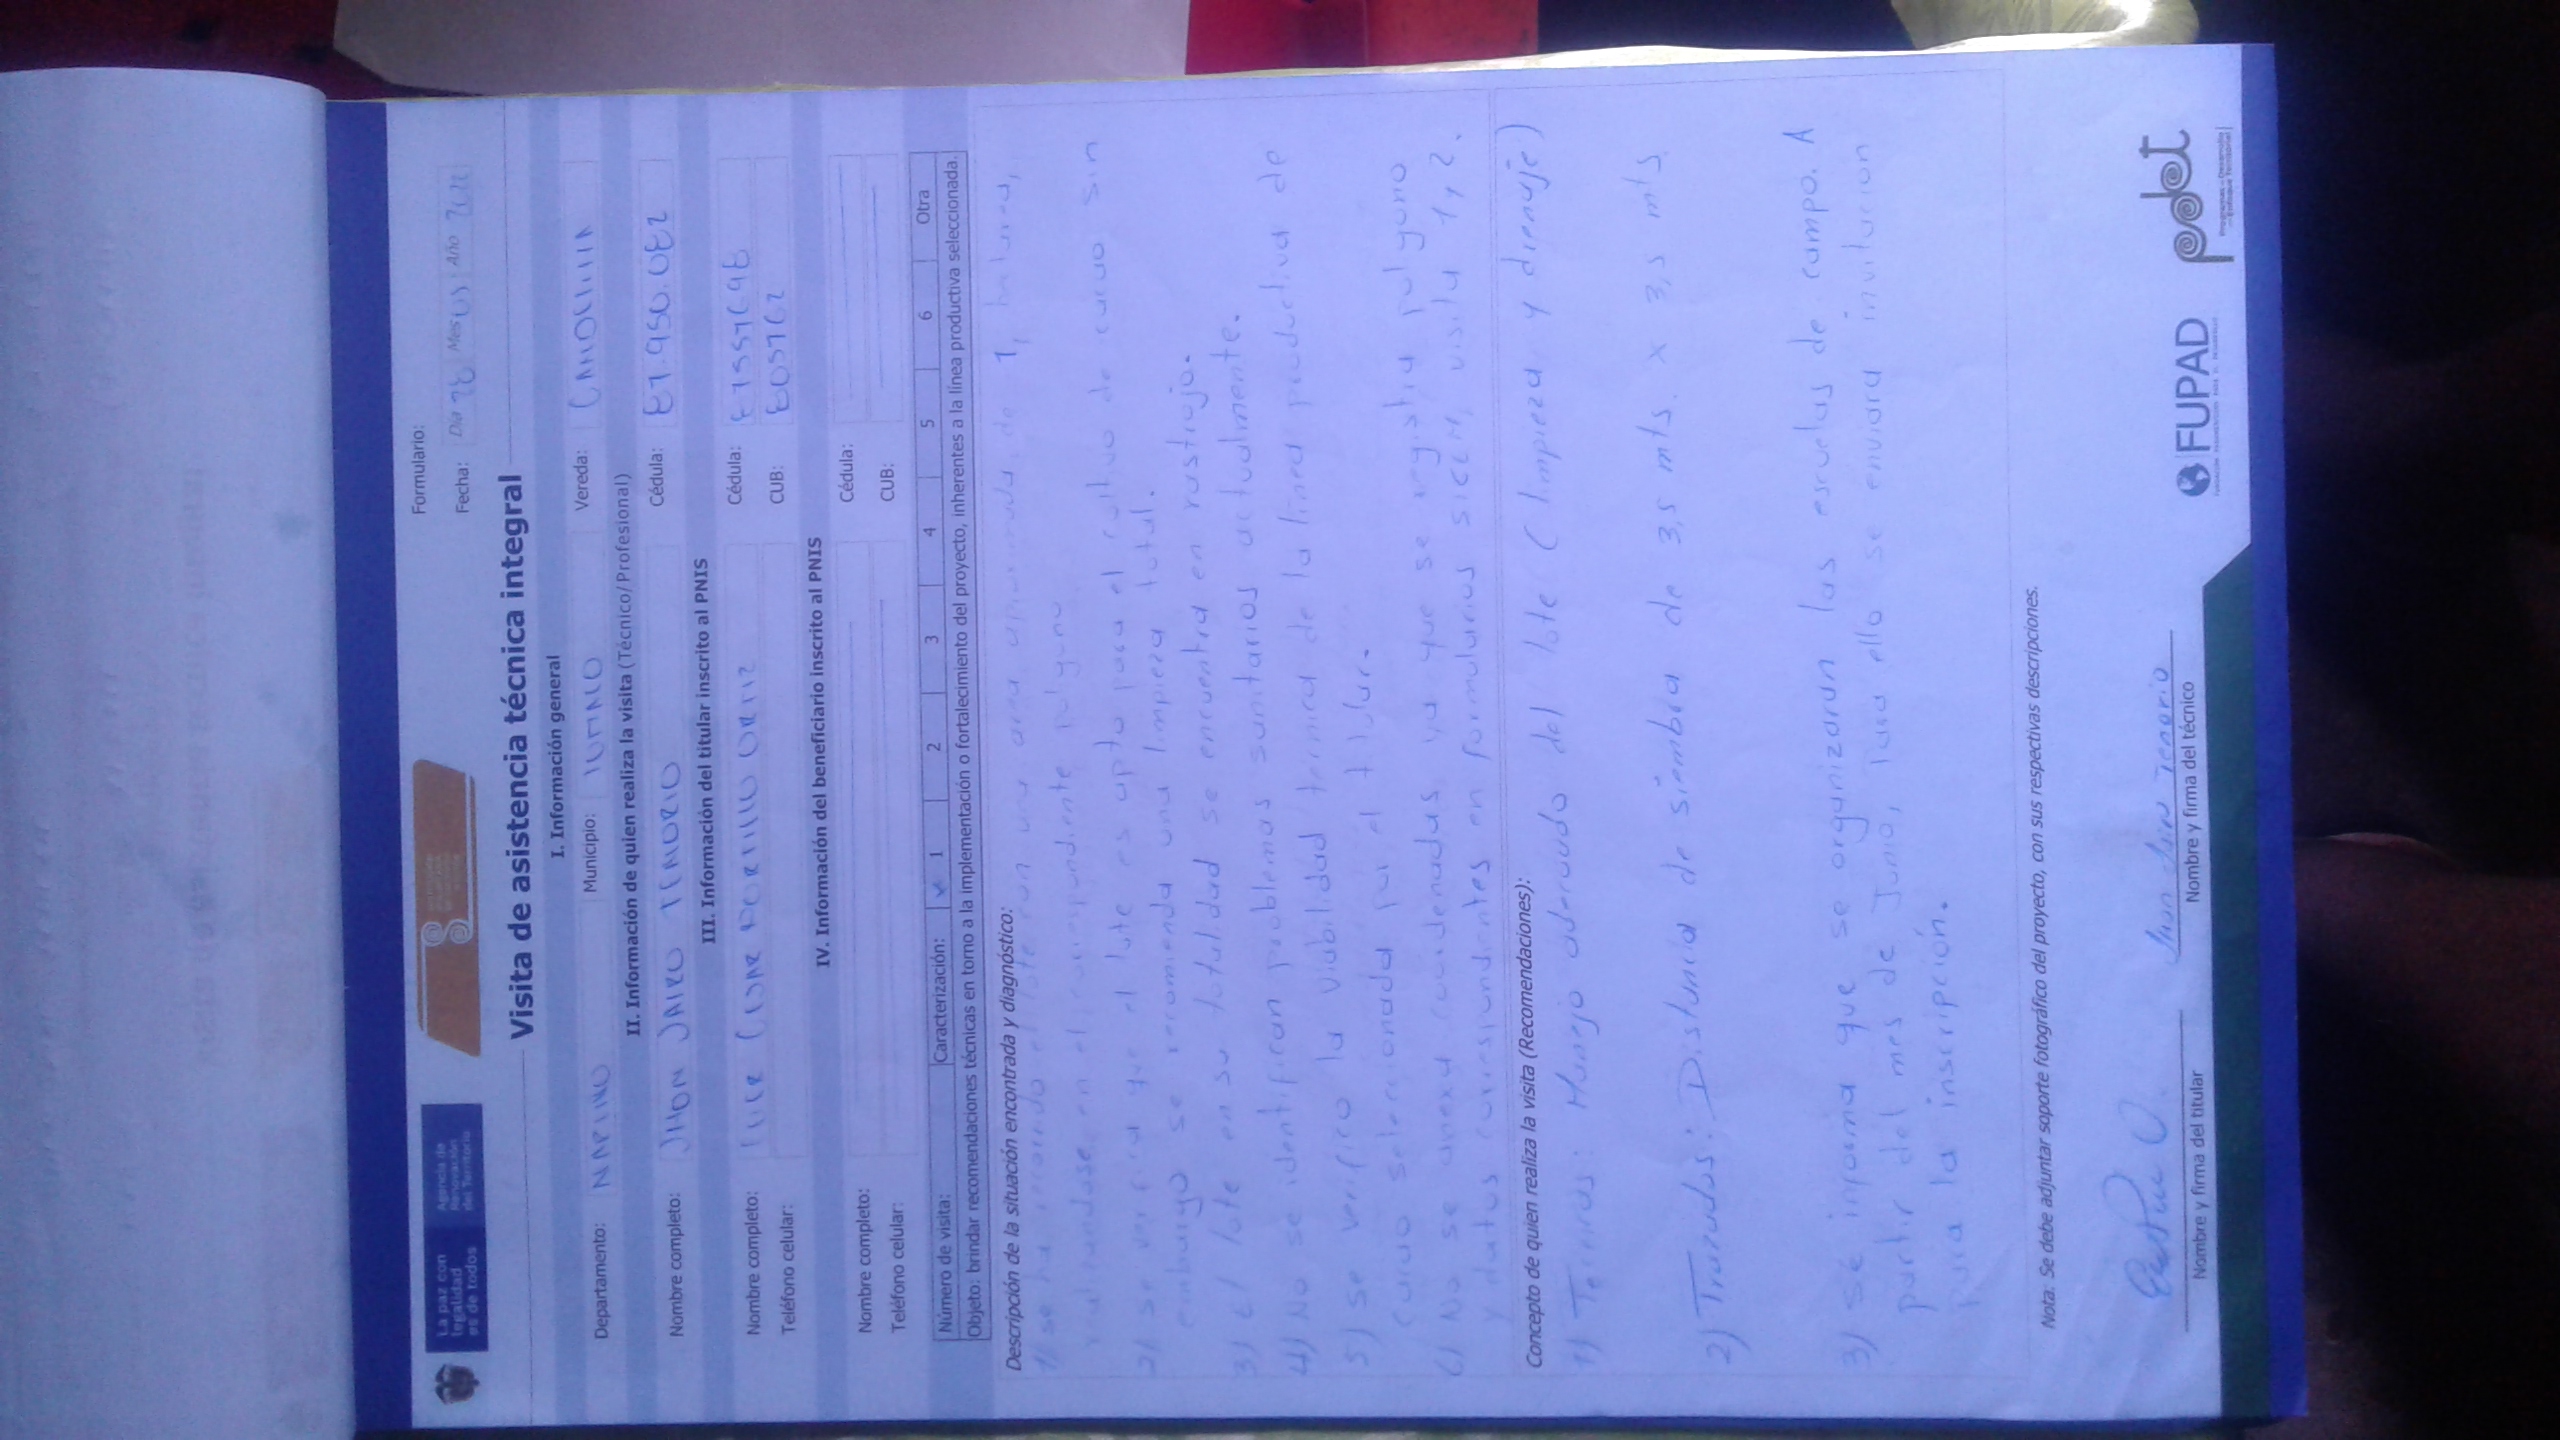 La paz con
legalidad
es de todos
Agencia de
Renovación
del Territorio
Formulario:
Fecha: Día 28 Mes 05 Año 2022
Visita de asistencia técnica integral
I. Información general
Departamento: NARIÑO Municipio: TUMACO Vereda:
II. Información de quien realiza la visita (Técnico/Profesional)
Nombre completo: JHON JAIRO TENORIO Cédula: 87.950.082
III. Información del titular inscrito al PNIS
Nombre completo: PORTILLO ORTIZ Cédula:
Teléfono celular: CUB:
IV. Información del beneficiario inscrito al PNIS
Nombre completo: Cédula:
Teléfono celular: CUB:
Número de visita: Caracterización: x 1 2 3 4 5 6 Otra
Objeto: brindar recomendaciones técnicas en torno a la implementación o fortalecimiento del proyecto, inherentes a la línea productiva seleccionada.
Descripción de la situación encontrada y diagnóstico:
1) se ha recorrido el lote con una area aproximada de 1, hectarea,
realizandose en el correspondiente poligono
2) se verifica que el lote es apto para el cultivo de cacao, sin
embargo se recomienda una limpieza total.
3) El lote en su totalidad se encuentra en rastrojo.
4) No se identifican problemas sanitarios actualmente.
5) se verifico la viabilidad tecnica de la linea productiva de
cacao seleccionada por el titular.
6) No se anexa coordenadas, ya que se registra poligono
y datos correspondientes en formularios SICEM, visita 1 y 2.
Concepto de quien realiza la visita (Recomendaciones):
1) Tecnicas: Manejo adecuado del lote (limpieza y drenaje)
2) Trazados: Distancia de siembra de 3,5 mts. x 3,5 mts.
3) se informa que se organizaran las escuelas de campo. A
partir del mes de Junio, para ello se enviara invitacion
para la inscripción.
Nota: Se debe adjuntar soporte fotográfico del proyecto, con sus respectivas descripciones.
Jhon Jairo Tenorio
Nombre y firma del titular Nombre y firma del técnico
FUPAD
pdet